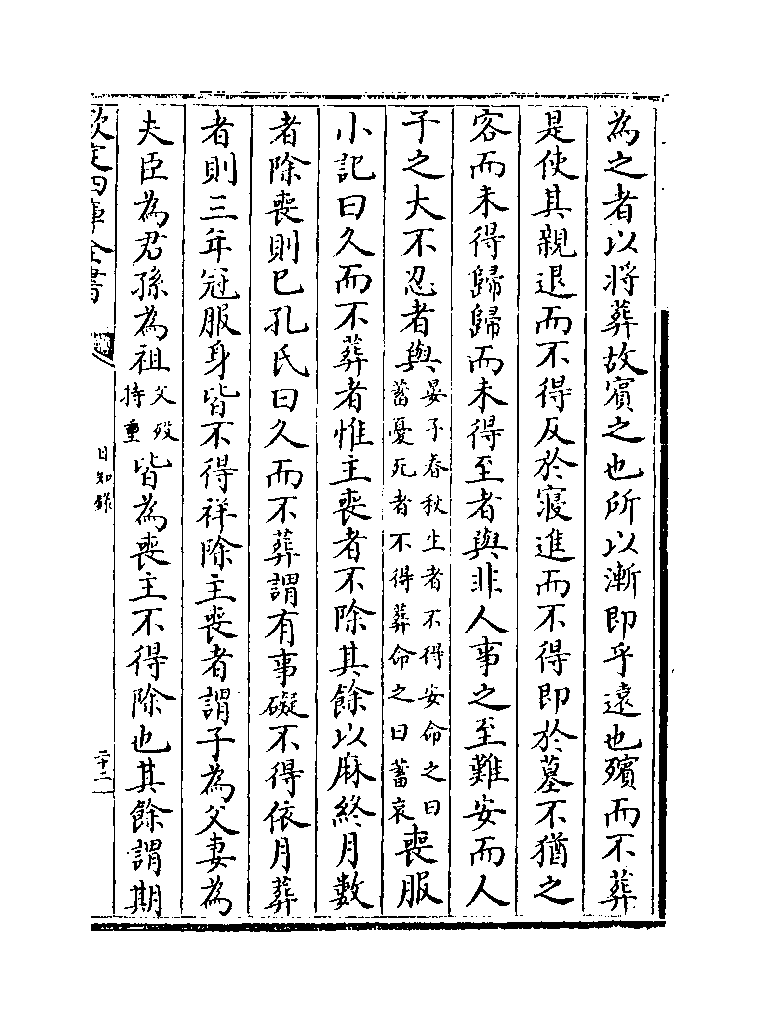 為之者以将葬故賔之也所以漸即乎遠也殯而不葬
是使其親退而不得反於寢進而不得即於墓不猶之
客而未得歸歸而未得至者與非人事之至難安而人
子之大不忍者與晏子春秋生者不得安命之曰蓄憂死者不得葬命之曰蓄哀喪服
小記曰久而不葬者惟主喪者不除其餘以麻終月數
者除喪則已孔氏曰久而不葬謂有事礙不得依月葬
者則三年冠服身皆不得祥除主喪者謂子為父妻為
夫臣為君孫為祖父歿持重皆為喪主不得除也其餘謂期
欽定四庫全書
日知錄
二十二